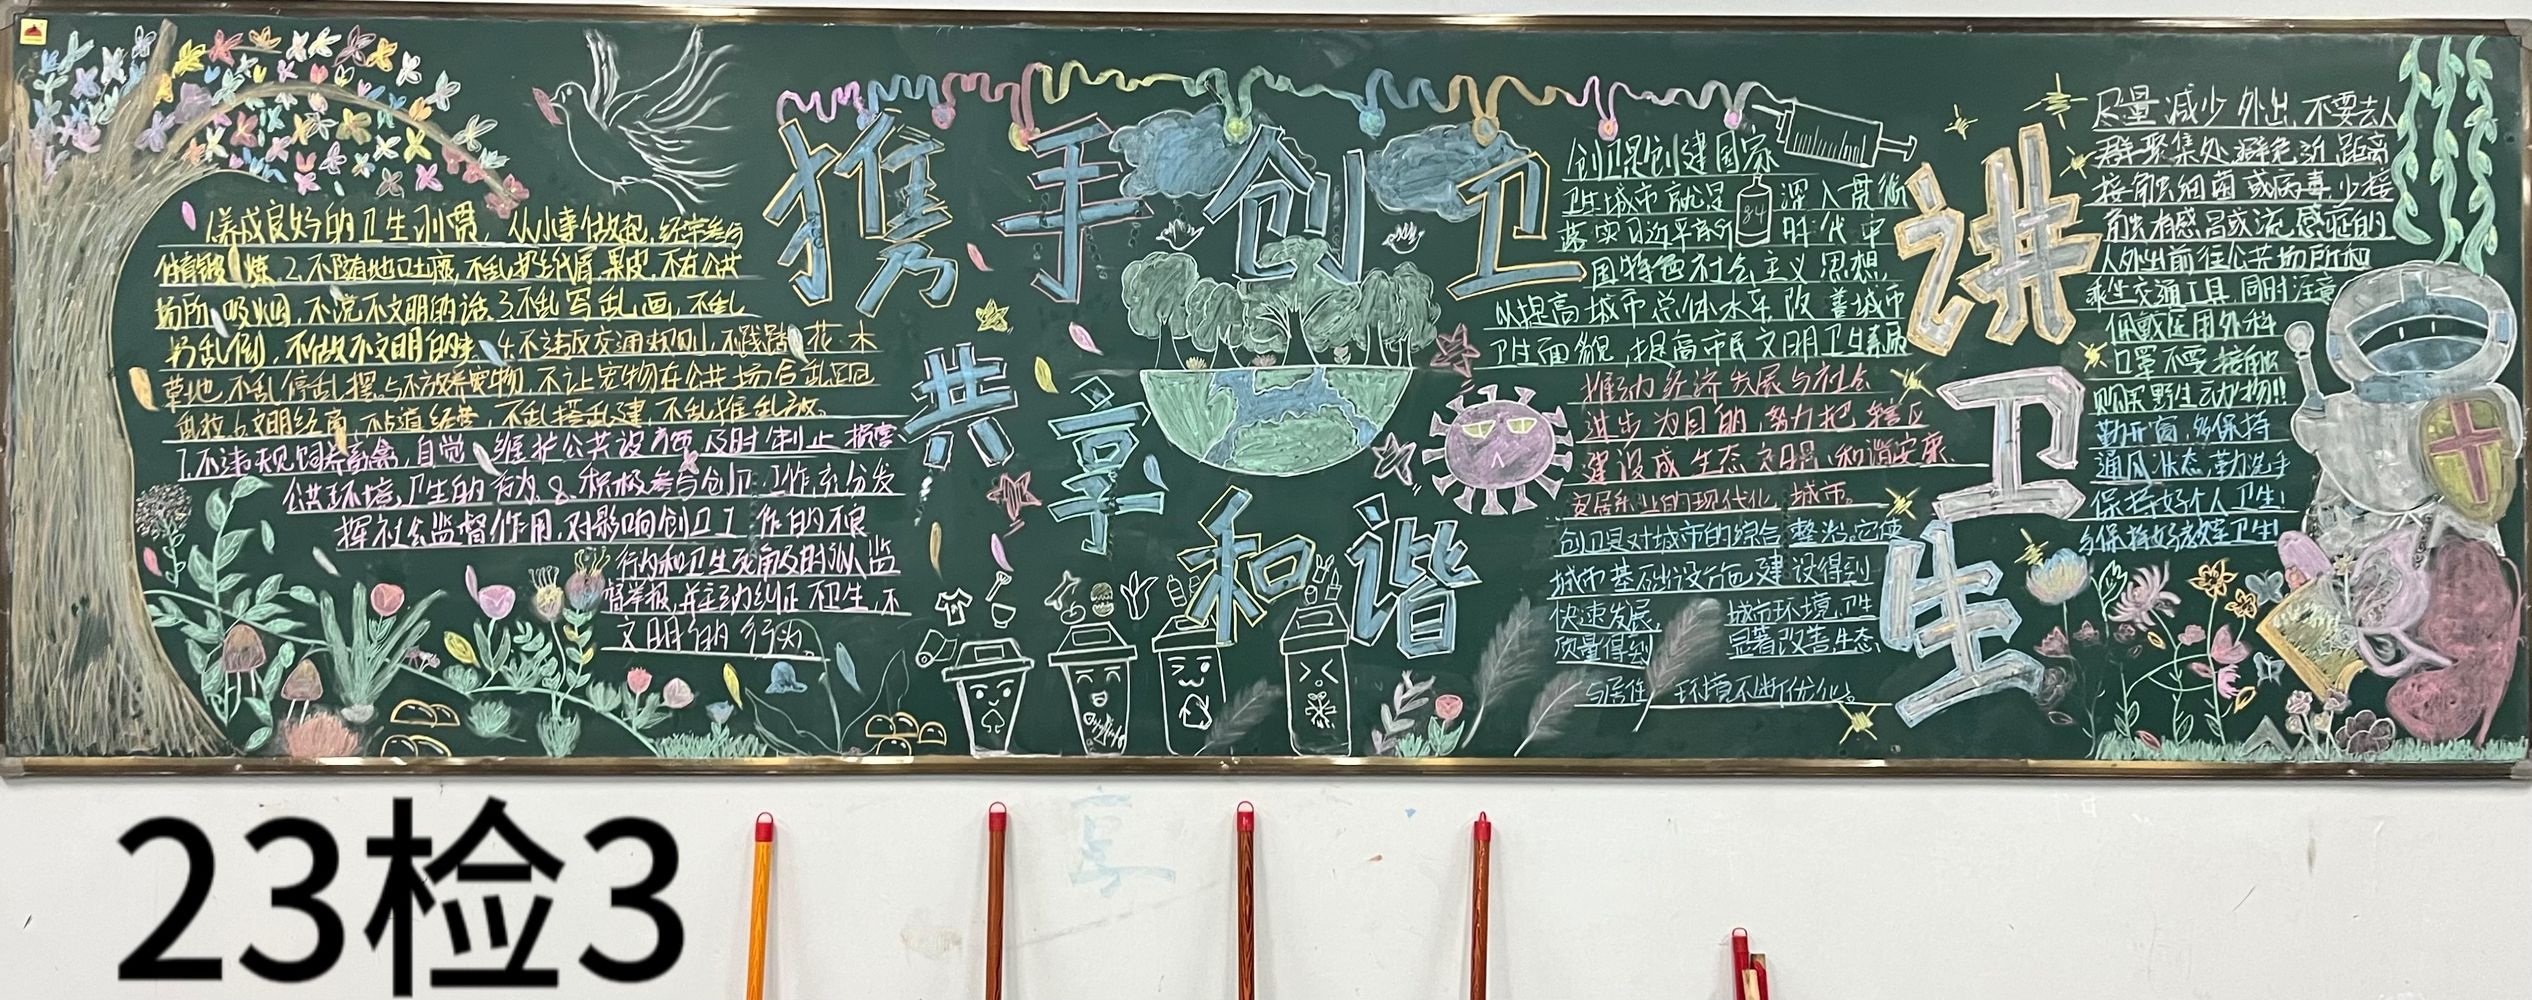 携手创卫
共享和谐
讲卫生
养成良好的卫生习惯，从小事做起，经常参与
体育锻炼.2.不随地吐痰，不乱扔纸屑果皮，不在公共
场所吸烟，不说不文明的话.3.不乱写乱画，不乱
扔乱倒，不做不文明的事.4.不违反交通规则，不践踏花木
草地，不乱停乱摆.5不放养宠物，不让宠物在公共场合乱跑
乱拉.6.文明经商，不占道经营，不乱搭乱建，不乱堆乱放。
7.不违规饲养家禽，自觉维护公共设施，及时制止损害
公共环境卫生的行为.8.积极参与创卫工作，充分发
挥社会监督作用，对影响创卫工作的不良
行为和卫生死角及时 监
督举报，并主动纠正不卫生，不
文明的行为。
创卫是创建国家
卫生城市就是深入贯彻
落实习近平新时代中
国特色社会主义思想，
以提高城市总体水平，改善城市
卫生面貌，提高市民文明卫生素质
推动经济发展与社会
进步为目的，努力把辖区
建设成生态文明、和谐安康、
宜居乐业的现代化城市。
创卫是对城市的综合整治。它使
城市基础设施建设得到
快速发展，城市环境卫生
质量得到显著改善，生态
与居住环境不断优化。
84
尽量减少外出，不要去人
群聚集处，避免近距离
接触细菌或病毒，少接
触有感冒或流感症的
人，外出前往公共场所和
乘坐交通工具，同时注意
佩戴医用外科
口罩，不要接触
购买野生动物!!
勤开窗，多保持
通风状态，勤洗手
保持好个人卫生！
保持好教室卫生！
23检3